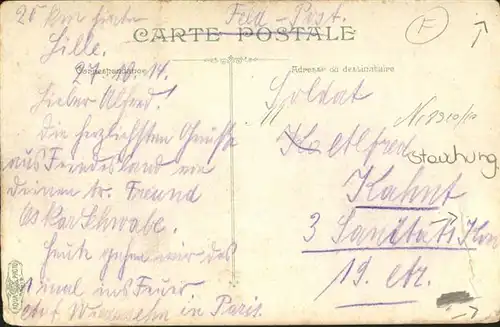 25 km hinter
Lille.
27.10.14.
Feld-Post.
CARTE POSTALE
Correspondance
Adresse du destinataire
F
Lieber Alfred!
Die herzlichsten Grüsse
aus Feindesland von
deinem tr. Freund
Oskar Schwabe.
Heute gehen wir das
1 mal ins Feuer
auf Wiedersehn in Paris.
Soldat
Alfred
Stauchung
Kahnt
3 Sanitäts
19.